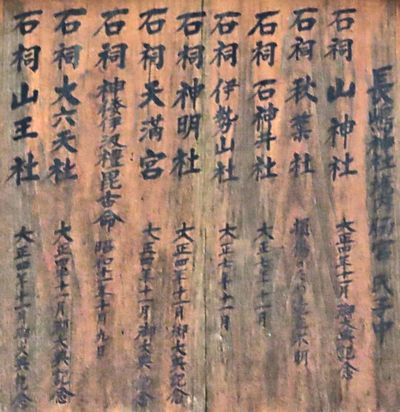 長崎神社境内 石宮 氏子中
石祠 山神社 大正四年十一月御大典記念
石祠 秋葉社 不明
石祠 石神井社 大正七年十一月
石祠 伊勢山社 大正七年十一月
石祠 神明社 大正四年十一月御大典記念
石祠 天満宮 大正四年十一月御大典記念
石祠 神倭伊波禮毘古命 昭和十五年十一月九日
石祠 大六天社 大正四年十一月御大典記念
石祠 山王社 大正四年十一月御大典記念